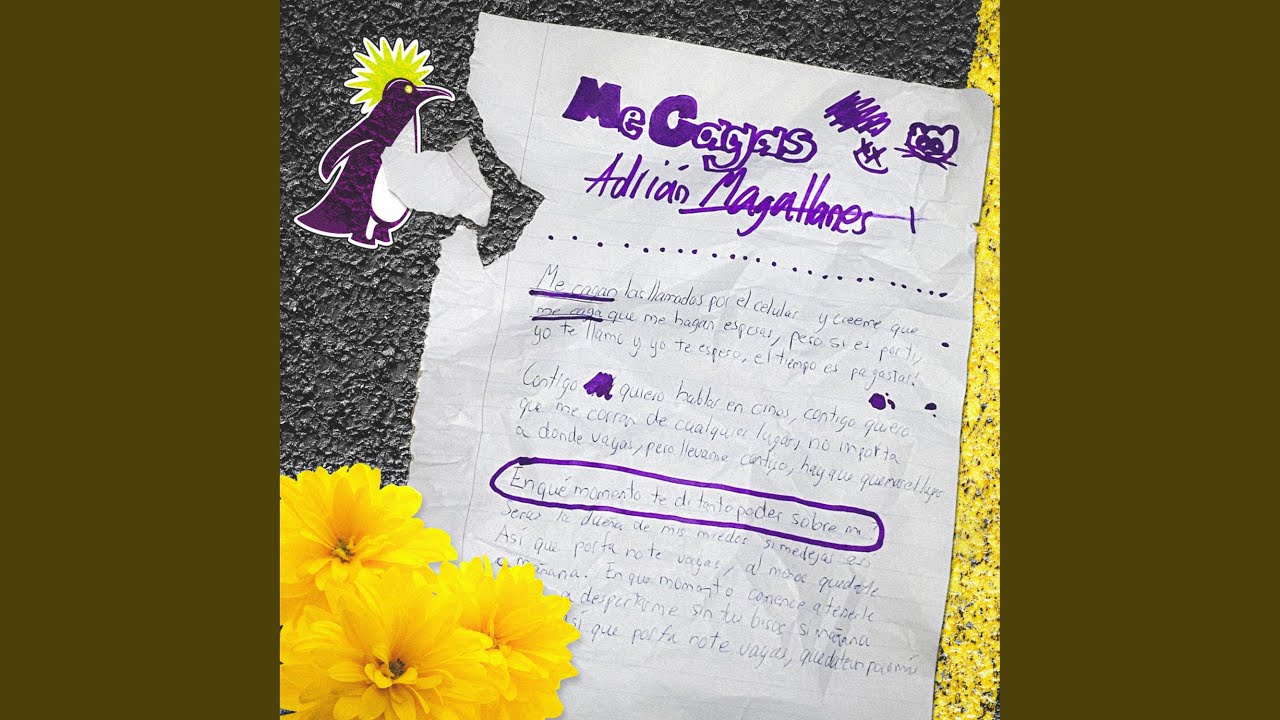 Me Cagas
Adrián Magallanes
Me cagan las llamadas por el celular y creeme que
me caga que me hagan esperar, pero si es por ti,
yo te llamo y yo te espero, el tiempo es pa gastar!
Contigo quiero hablar en cinos, contigo quiero
que me corran de cualquier lugar, no importa
a donde vayas, pero llevame contigo, hay que quemar el
En qué momento te di tanto poder sobre mi?
Seras la dueña de mis miedos si me dejas asi
Así que porfa no te vayas, al menos quedate
mañana. En que momento comence a tenerle
a despertarme sin tu si mañana
sí que porfa no te vayas, quedate un poco más